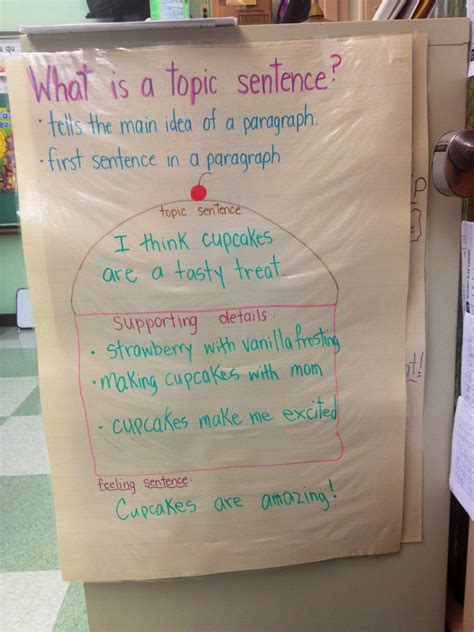 What is a topic sentence?
• tells the main idea of a paragraph.
• first sentence in a paragraph
topic sentence
I think cupcakes
are a tasty treat.
Supporting details:
• strawberry with vanilla frosting
• making cupcakes with mom
• cupcakes make me excited
feeling sentence:
Cupcakes are amazing!